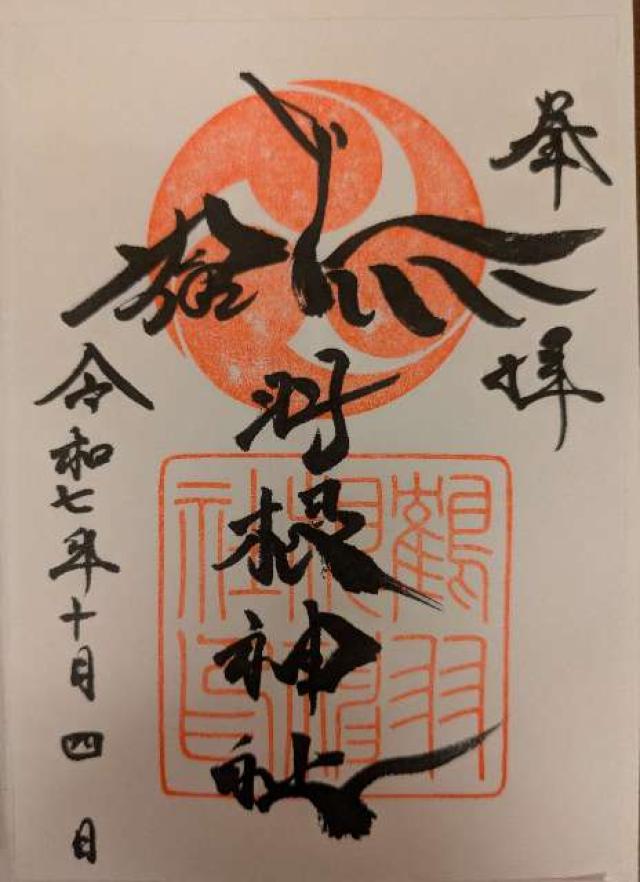 奉拝
鶴羽根神社
令和七年十月四日
鶴羽
根神
社印